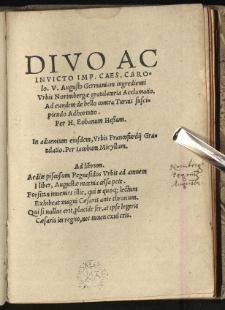 DIVO AC
INVICTO IMP. CAES. CARO-
lo. V. Augusto Germaniam ingredienti
Vrbis Norimbergæ gratulatoria Acclamatio.
Ad eundem de bello contra Turcas susci-
piendo Adhortatio.
Per H. Eobanum Hessum.
In aduentum eiusdem, Vrbis
Gra-
tulatio. Per Iacobum Micyllum.
Ad librum.
Aediæ piscosam Pegnesidos Vrbis ad amnem
I liber, Augustæ mœnia celsa pete.
Forsitan inuenies illic, qui te quoque lectum
Exhibeat magni Cæsaris ante thronum.
Qui si nullus erit, placide fer, at ipse
Cæsaris in regno, nec tamen exul eris.
Nornberga
Augusta